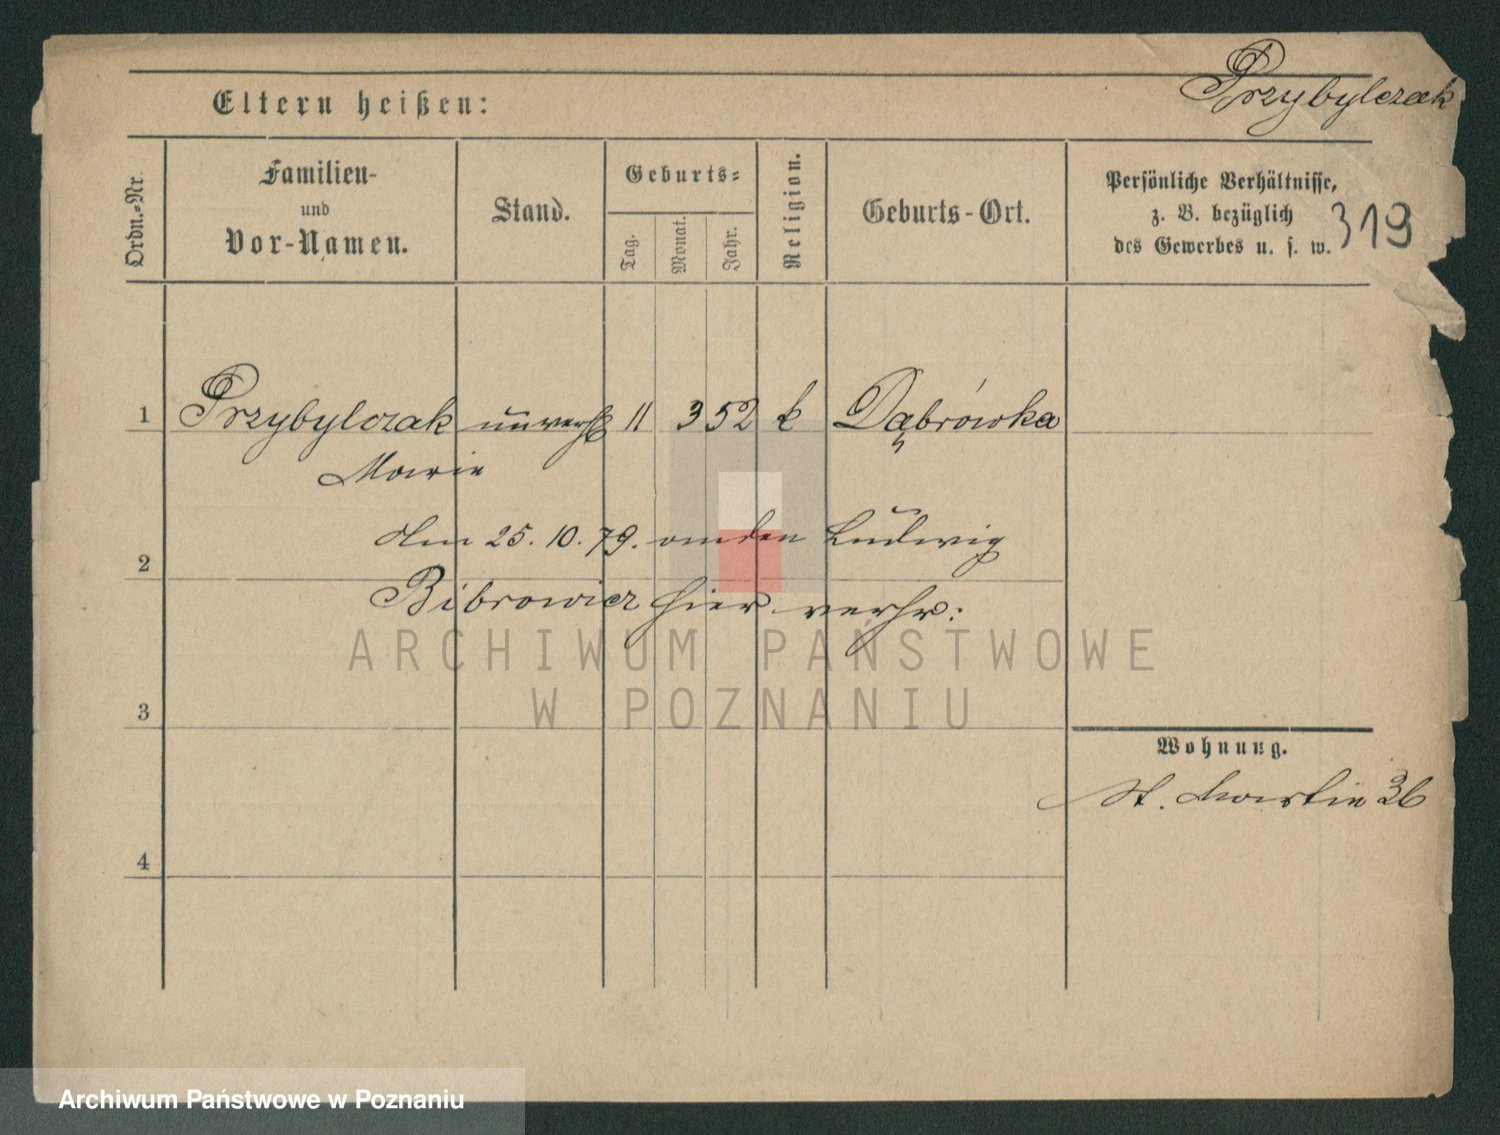 Przybylczak
Eltern heißen:
Ordn.-Nr.
Familien-
und
Vor-Namen.
Stand.
Geburts-
Tag.
Monat.
Jahr.
Religion.
Geburts-Ort.
Persönliche Verhältnisse,
z. B. bezüglich
des Gewerbes u. s. w.
319
1 Przybylczak unverh 11 3 52 k Dąbrówka
Marie
Am 25. 10. 79. an den Ludwig
2
Bibrowicz hier verhr:
ARCHIWUM PAŃSTWOWE
W POZNANIU
3
Wohnung.
St. Martin 36
4
Archiwum Państwowe w Poznaniu